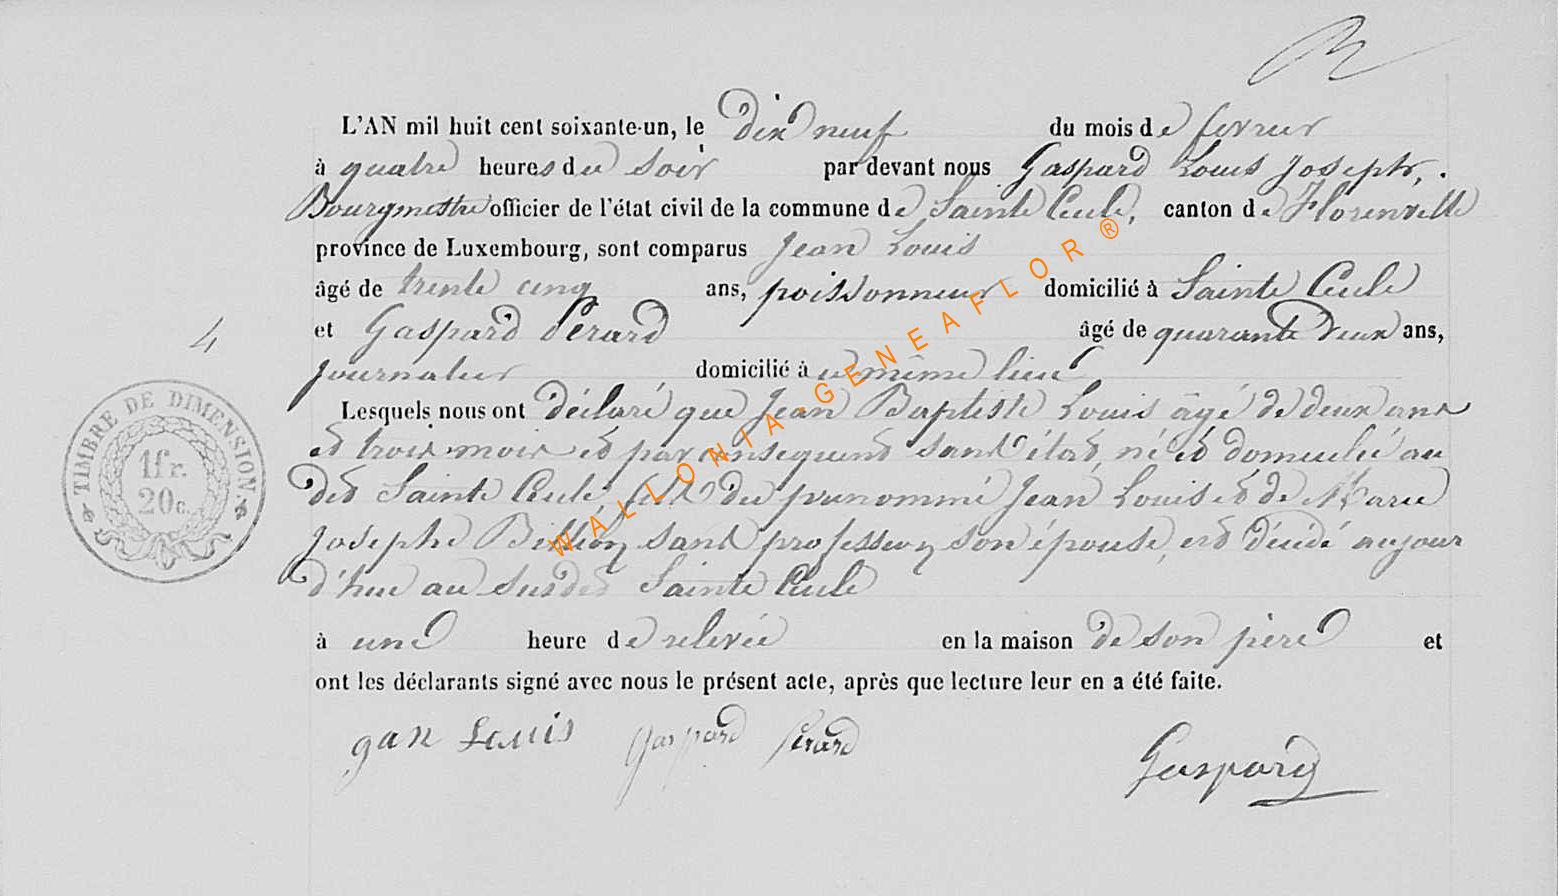 L'AN mil huit cent soixante-un, le dix neuf du mois de fevrier
à quatre heures du soir par devant nous Gaspard Louis Joseph,
Bourgmestre officier de l'état civil de la commune de Sainte Cecile, canton de Florenville
province de Luxembourg, sont comparus Jean Louis
âgé de trente cinq ans, poissonneur domicilié à Sainte Cecile
et Gaspard Pérard âgé de quarante deux ans,
4
journalier domicilié à ce même lieu
Lesquels nous ont déclaré que Jean Baptiste Louis âgé de deux ans
et trois mois et par consequent sans état, né et domicilié au
dit Sainte Cecile, fils du prénommé Jean Louis et de Marie
Josephe Billion sans profession son épouse, est décédé aujour
d'hui au susdit Sainte Cecile
à une heure de relevée en la maison de son père et
ont les déclarants signé avec nous le présent acte, après que lecture leur en a été faite.
gan Louis Gaspard Pérard
Gaspard
TIMBRE DE DIMENSION
1fr.
20c.
WALLONIA-GENEAFLOR®